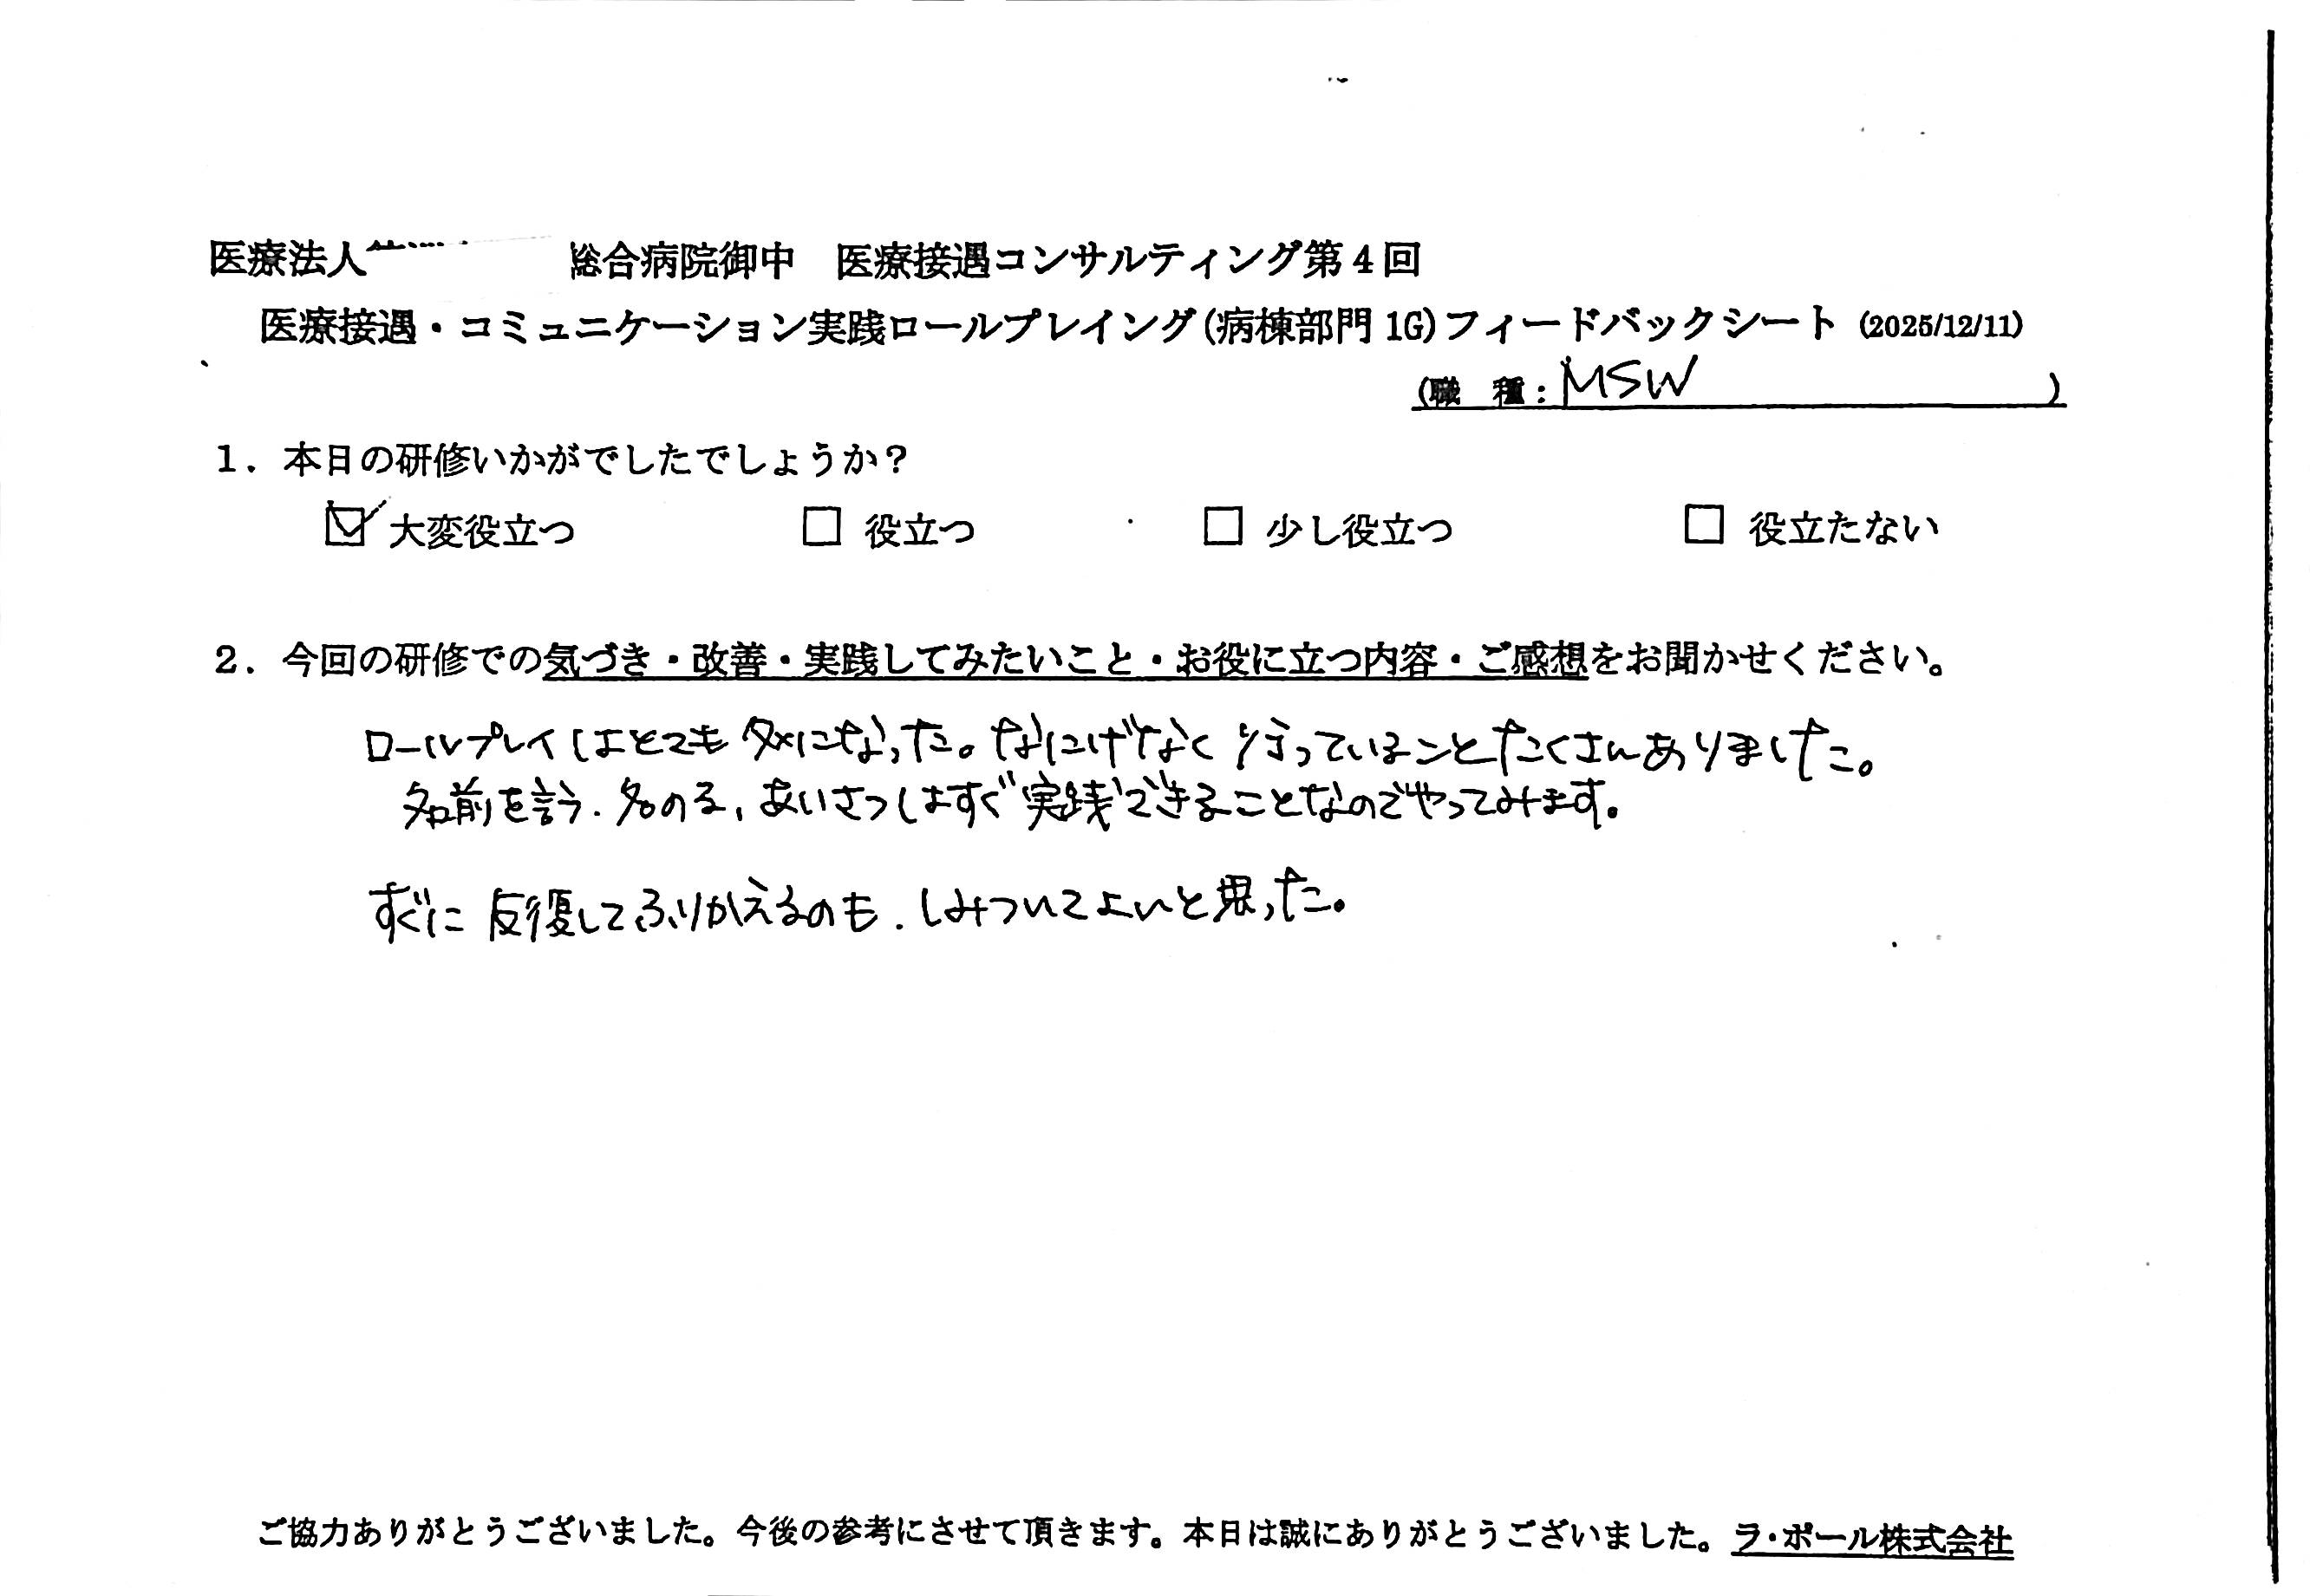 医療法人 総合病院御中 医療接遇コンサルティング第4回
医療接遇・コミュニケーション実践ロールプレイング(病棟部門1G)フィードバックシート (2025/12/11)
(職 種:MSW )
1.本日の研修いかがでしたでしょうか?
☑ 大変役立つ □ 役立つ □ 少し役立つ □ 役立たない
2.今回の研修での気づき・改善・実践してみたいこと・お役に立つ内容・ご感想をお聞かせください。
ロールプレイはとてもタメになった。なにげなく行っていることたくさんありました。
名前を言う.名のる,あいさつはすぐ実践できることなのでやってみます。
すぐに反復してふりかえるのも.しみついてよいと思った。
ご協力ありがとうございました。今後の参考にさせて頂きます。本日は誠にありがとうございました。ラ・ポール株式会社